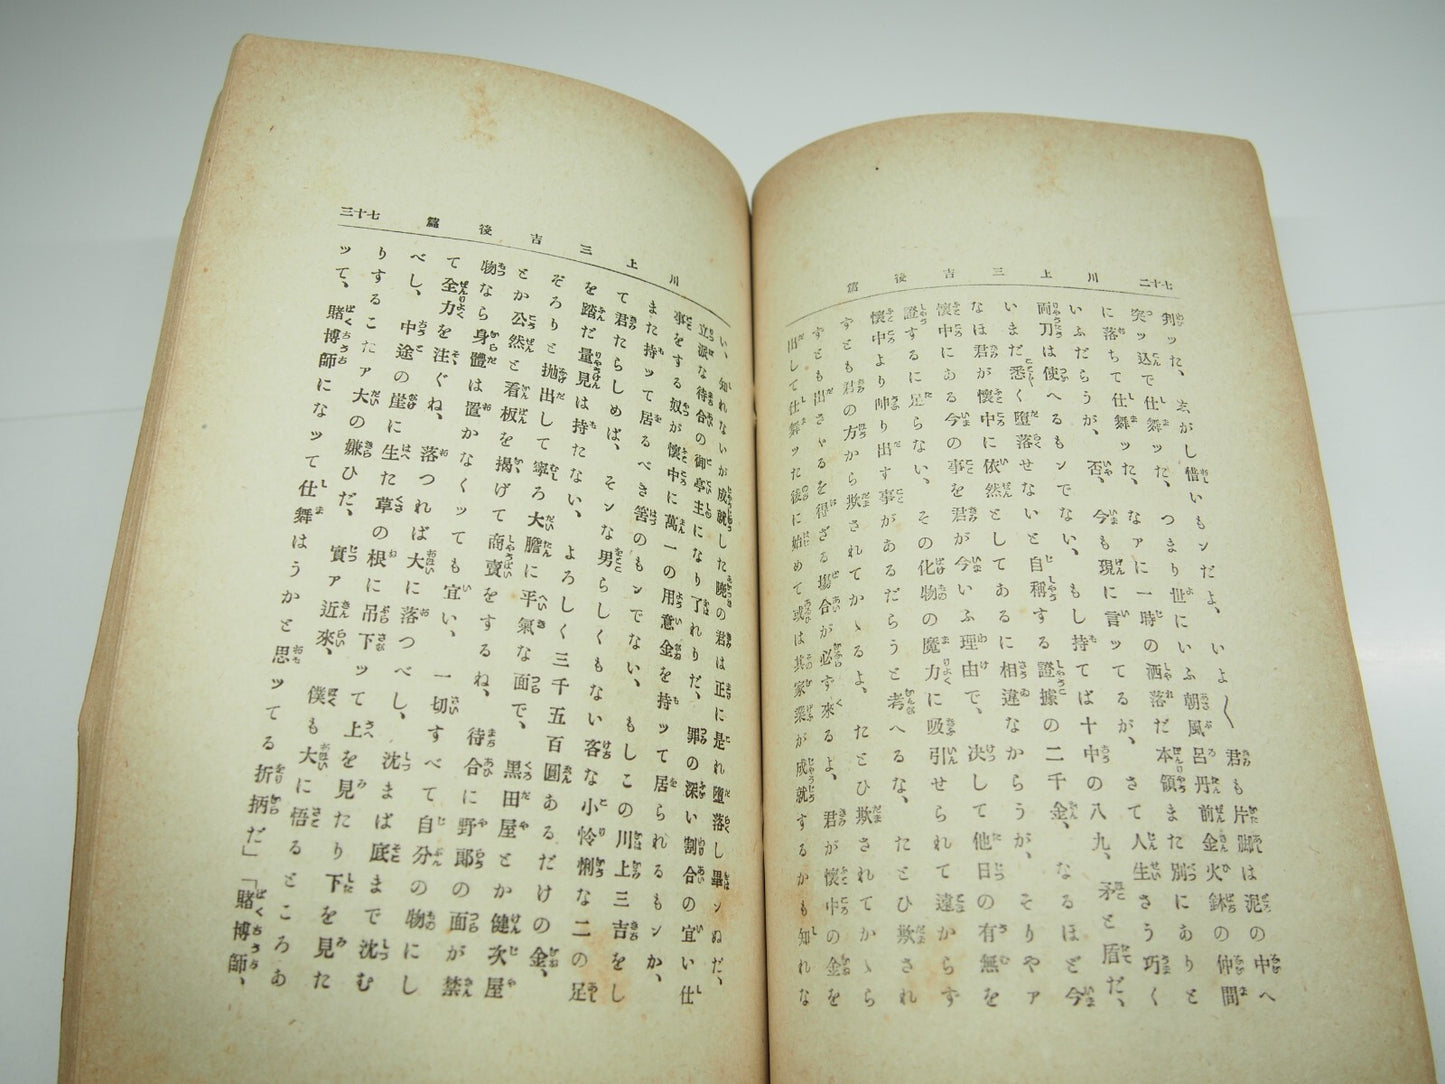 川上三吉後篇　七十二
判ッた、まがし惜いもンだよ、いよ〱君も片脚は泥の中へ
に落ちて仕舞ッた、つまり世にいふ朝風呂丹前金火鉢の仲間
突ッ込で仕舞ッた、なァに一時の洒落だ本領また別にありと
いふだらうが、否、今も現に言ッてるが、さて人生さう巧く
両刀は使へるもンでない、もし持てば十中の八九、矛と盾だ、
いまだ悉く堕落せないと自稱する證據の二千金、なるほど今
なほ君が懷中に依然としてあるに相違なからうが、そりやァ
懷中にある今の事を君が今いふ理由で、决して他日の有無を
證するに足らない、その化物の魔力に吸引せられて遠からず
懷中より帥り出す事があるだらうと考へるな、たとひ欺され
すとも君の方から欺されてかゝるよ、たとひ欺されてかゝら
すとも出さゃるを得ざる塲合が必ず來るよ、君が懷中の金を
出して仕舞ッた後に始めて或は其家業が成就するかも知れな
川上三吉後篇　七十三
い、知れないが成就した曉の君は正に是れ堕落し畢ンぬだ、
立派な待合の御亭主になり了れりだ、罪の深い割合の宜い仕
事をする奴が懷中に萬一の用意金を持ッて居られるもンか、
また持ッて居るべき筈のもンでない、もしこの川上三吉をし
て君たらしめば、そンな男らしくもない客な小怜悧な二の足
を踏だ量見は持たない、よろしく三千五百圓あるだけの金、
ぞろりと抛出して寧ろ大膽に平氣な面で、黒田屋とか健次屋
とか公然と看板を揭げて商賣をするね、待合に野郎の面が禁
物なら身體は置かなくッても宜い、一切すべて自分の物にし
て全力を注ぐね、落つれば大に落つべし、沈まば底まで沈む
べし、中途の崖に生た草の根に吊下ッて上を見たり下を見た
りするこたァ大の嫌ひだ、實ァ近來、僕も大に悟るところあ
ッて、賭博師になッて仕舞はうかと思ッてる折柄だ」「賭博師、